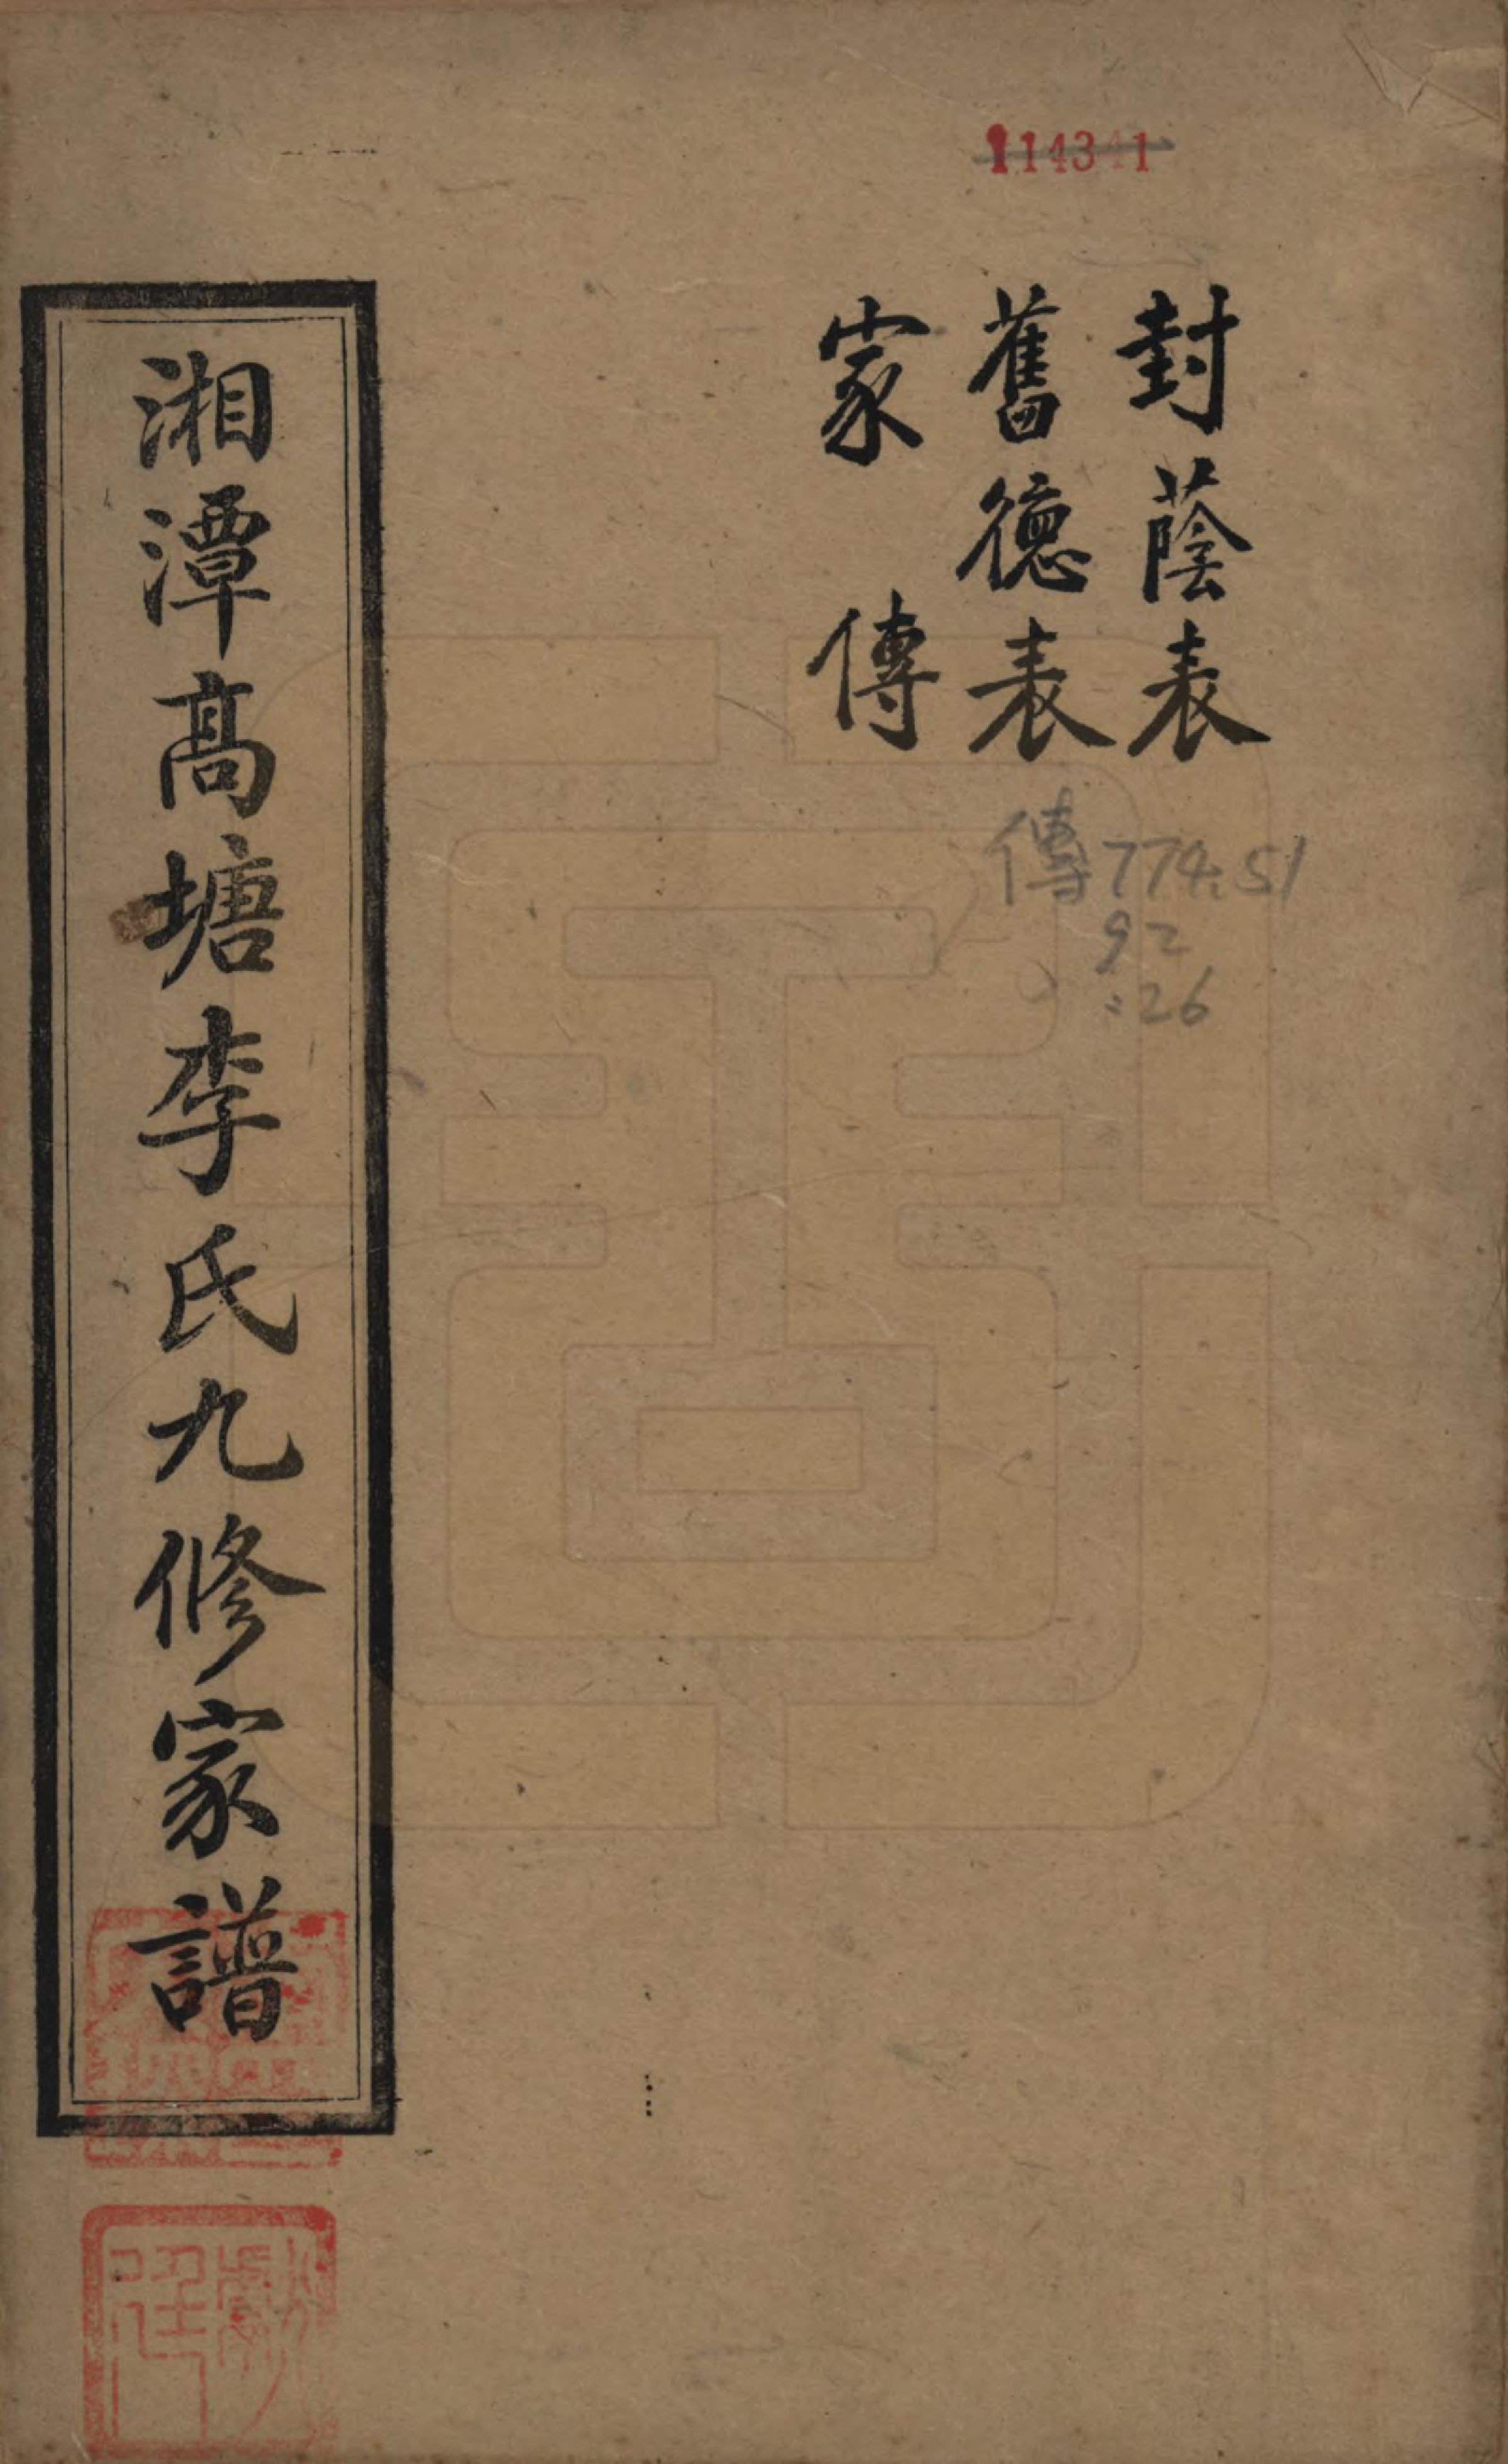 封蔭表
舊德表
家傳
湘潭高塘李氏九修家譜
傳774.51
92
:26